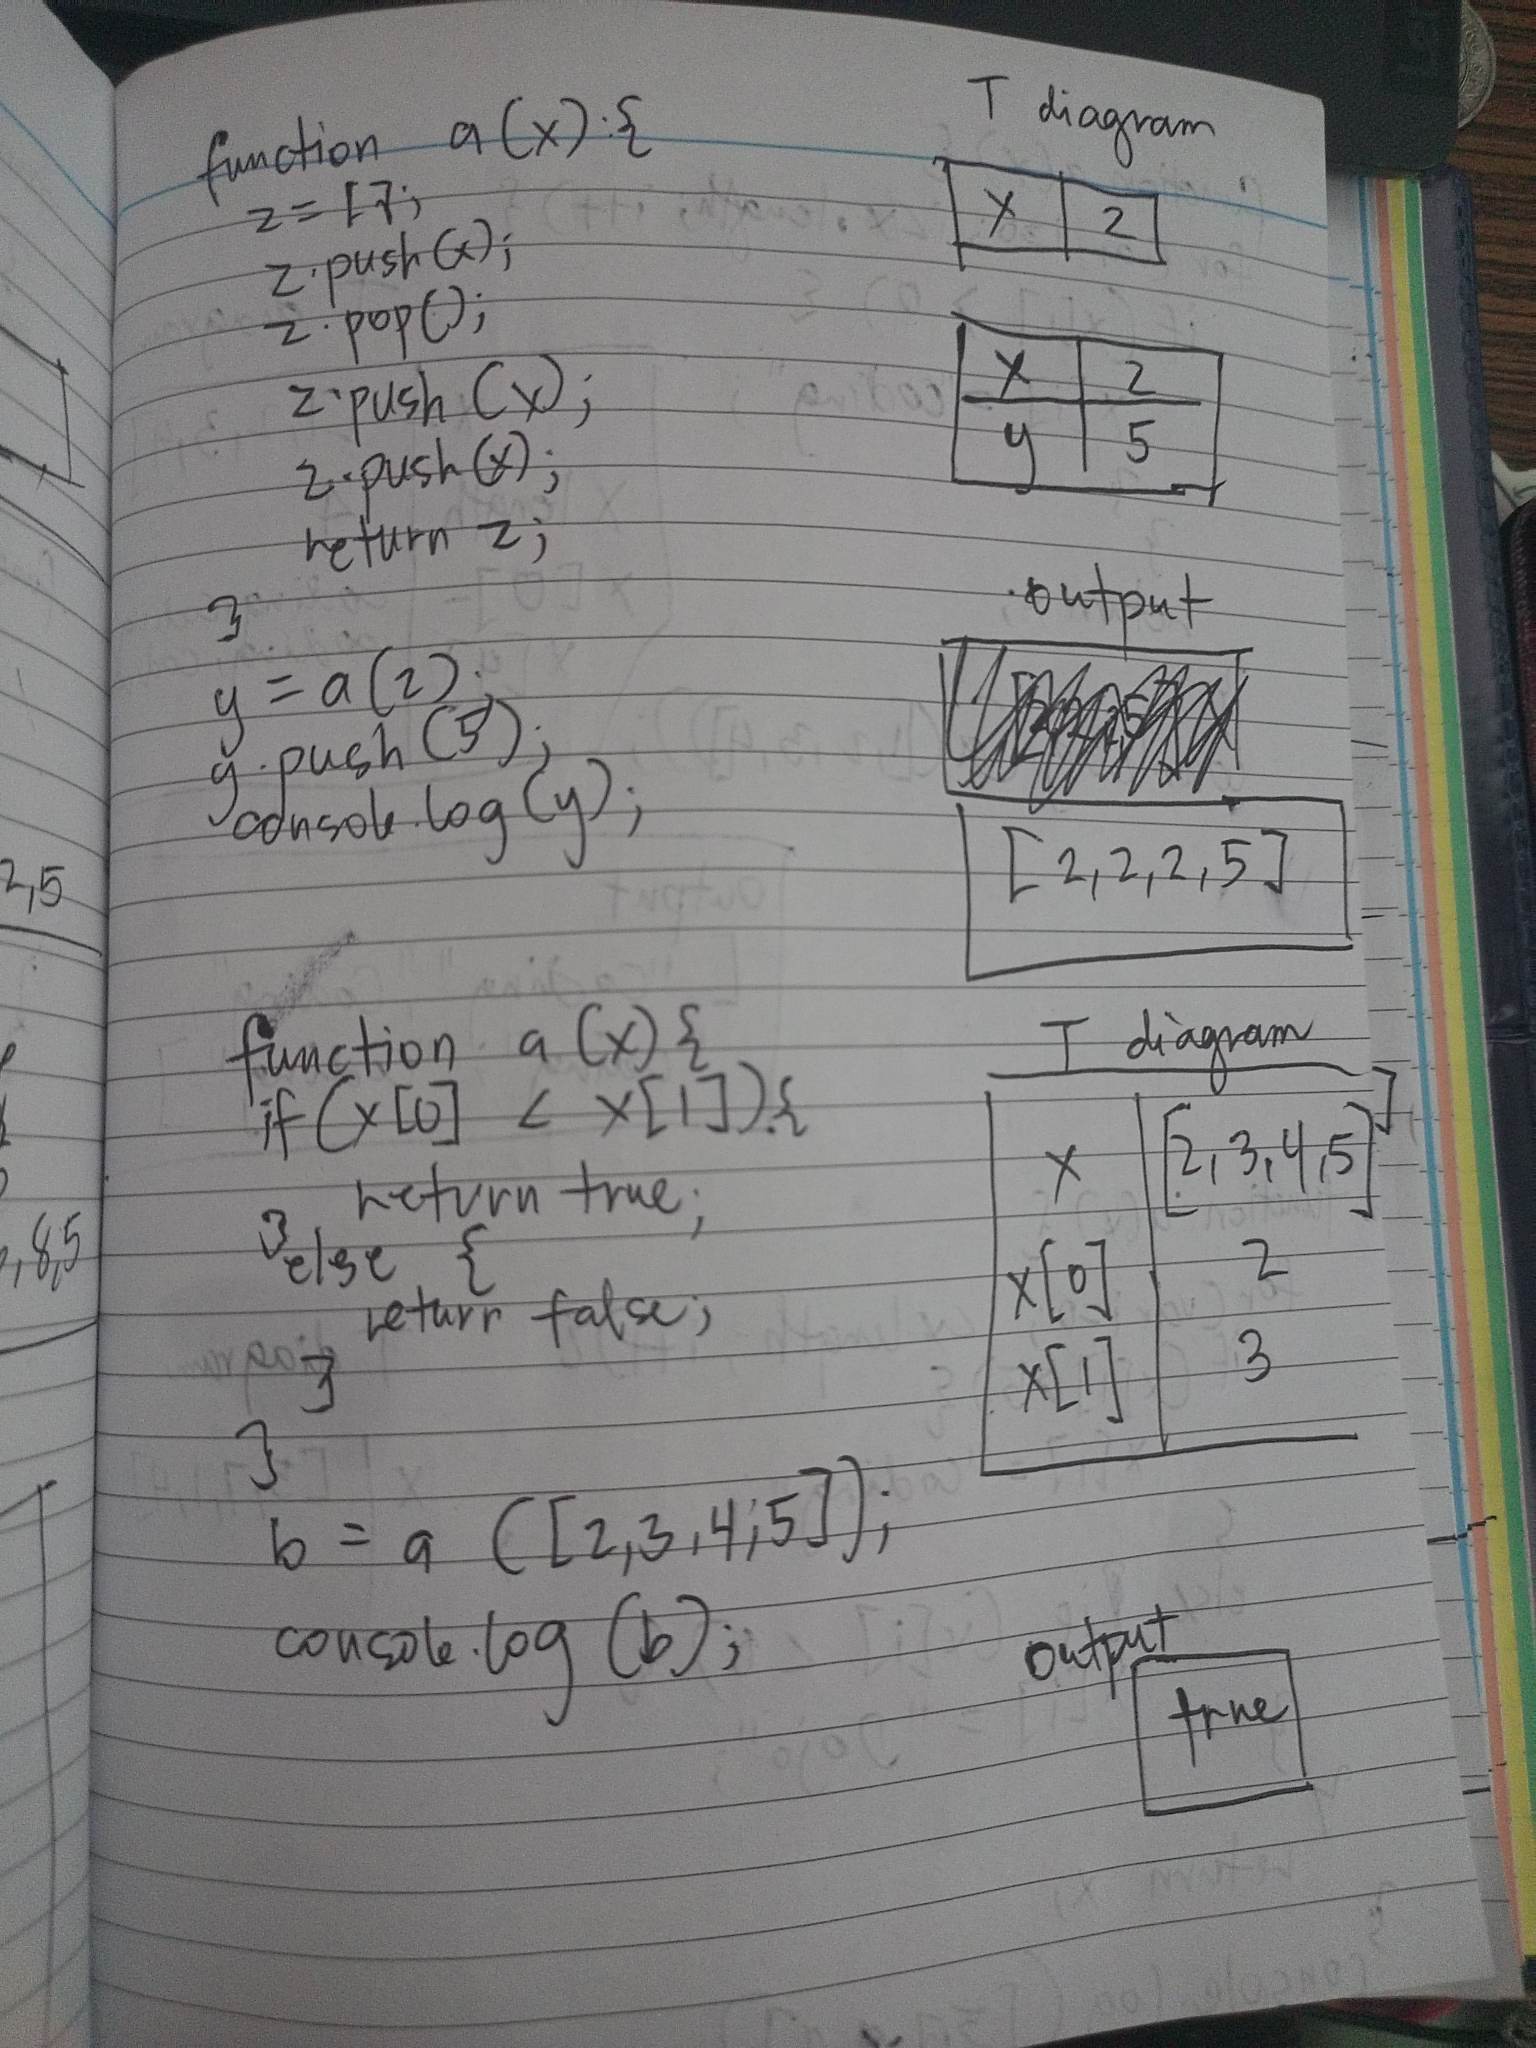 function a(x){
z=[];
z.push(x);
z.pop();
z.push(x);
z.push(x);
return z;
}
y = a(2);
y.push(5);
console.log(y);
T diagram
x 2
x 2
y 5
output
[2,2,2,5]
function a(x){
if(x[0] < x[1]){
return true;
}else {
return false;
}
}
b = a ([2,3,4,5]);
console.log(b);
T diagram
x [2,3,4,5]]
x[0] 2
x[1] 3
output
true
2,5
,8,5